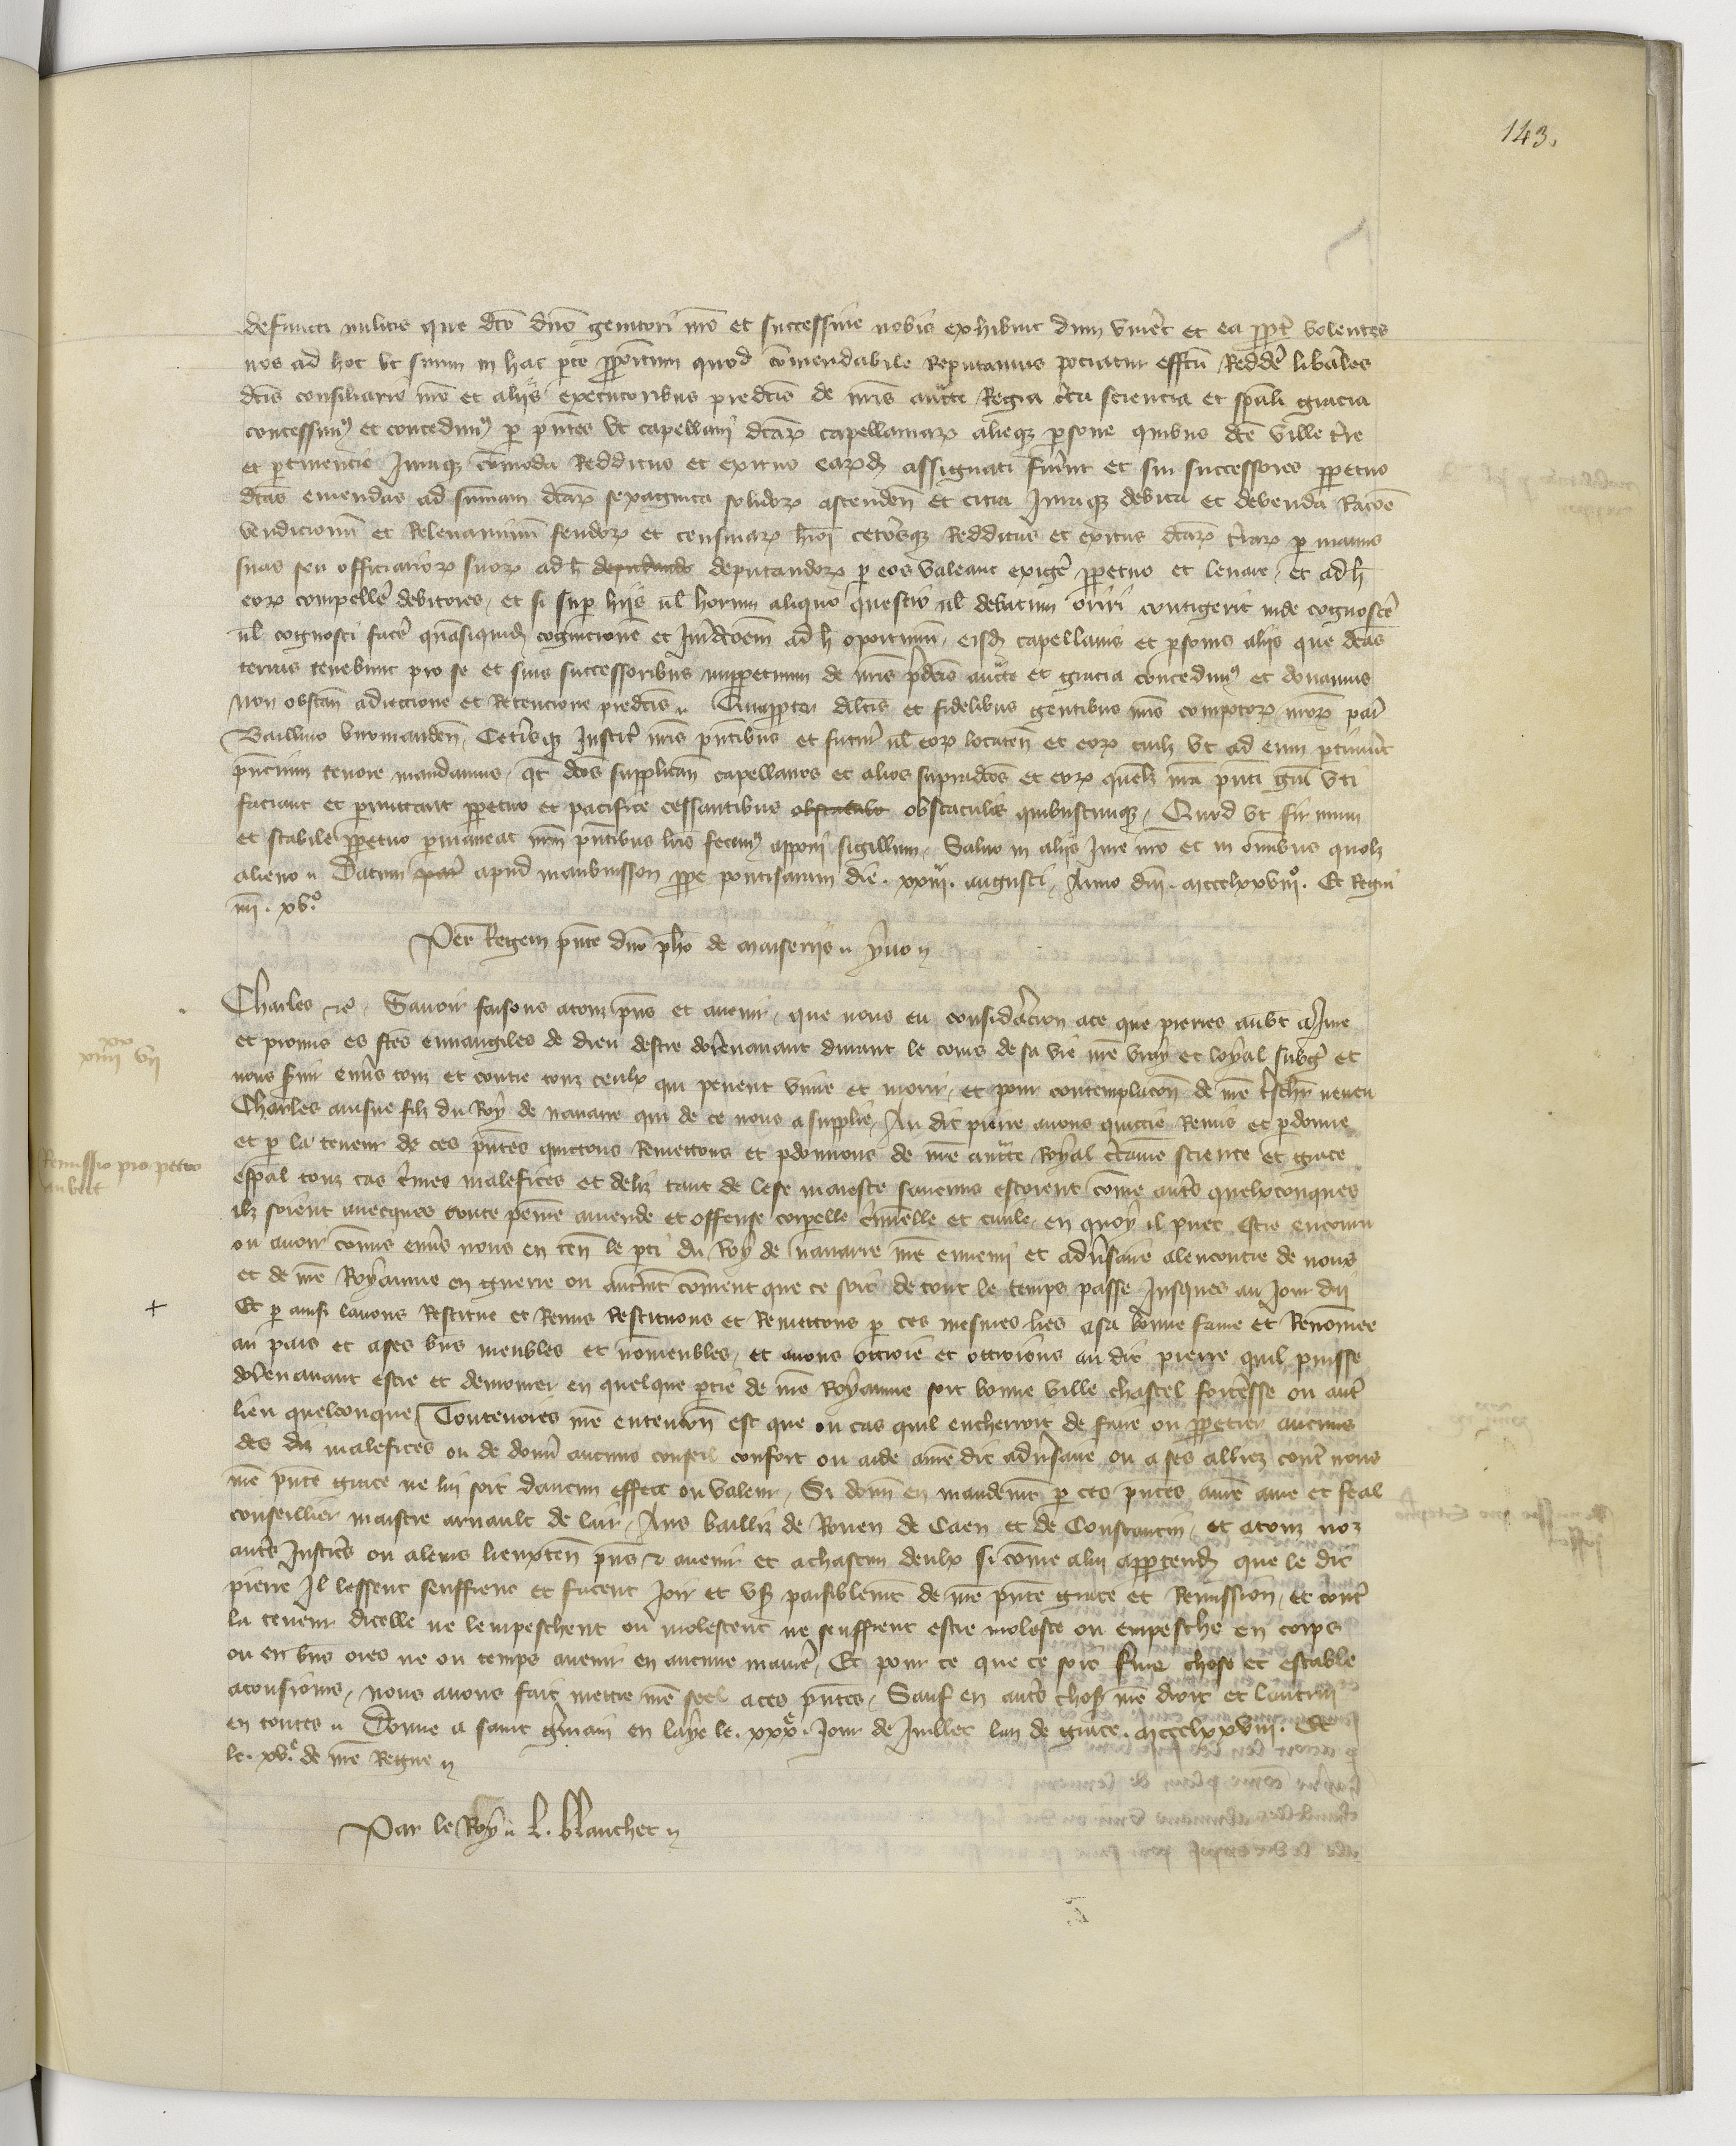 143.
defuncti militis que dco dno genitori nro et successive nobis exhibuit dum viveret et ea ppter volentes
nos ad hoc ut suum in hac pte ppositum quod comendabile reputamus pociatur effctu reddere liberales
dcis consiliario nro et aliis executoribus predcis de nris aucte regia certa sciencia et spali gracia
concessimus et concedimus p pntes ut capellani dcarum capellaniarum alieque psone quibus dce ville terre
et ptinencie juraque comoda redditus et exitus earumdem assignati fuerint et sui successores ppetuo
dcas emendas ad summam dcarum sexaginta solidorum ascenden et citra juraque debita et devenda racoe
vendicionum et relevaminum feudorum et censivarum hmoi ceterosque redditus et exitus dcarum terrarum p manus
suas seu officiariorum suorum ad h deputando deputandorum p eos valeant exigere ppetuo et levare, et ad h
eorum compellere debitores, et si sup hiis vl horum aliquo questio vl debatum oriri contigerit inde cognoscere
vl cognosci facere quasiquidem cognicionem et jurisdcoem ad h oportunam, eisdem capellanis et psonis aliis que dcas
terras tenebunt pro se et suis successoribus imppetuum de nris pdcis aucte et gracia concedimus et donamus
non obstan adieccione et retencione predcis. Quappter dilcis et fidelibus gentibus nris compotorum nrorum par
Baillivo viromanden, ceterisque justic nris pntibus et futuris vl eorum locaten et eorum cuilibet ut ad eum ptinuerit
pncium tenore mandamus, qt dcos supplican capellanos et alios supradcos et eorum quemlibet nra pnti gra uti
faciant et pmittant ppetuo et pacifice cessantibus obstaculo obstaculis quibuscunque, Quod ut firmum
et stabile ppetuo pmaneat nrm pntibus lris fecimus apponi sigillum, Salvo in aliis jure nro et in omnibus quolibet
alieno. Datum par apud maubuisson ppe pontisaram die. xxiii. augusti, Anno dni. mccclxxviiio. Et Regni
nri. xvo.
Per Regem pnte dno pho de maiseriis. yvo
Charles etc. Savoir faisons a touz pns et avenir, que nous en consideracion a ce que pierres aubert a jure
et promis es stes euvangiles de dieu destre dorenavant durant le cours de sa vie nre vray et loyal subget et
nous servir envers touz et contre touz ceulx qui pevent vivre et morir, et pour contemplacon de nre treschr neveu
Charles ainsne filz du Roy de navarre qui de ce nous a supplie, Au dit pierre avons quictie remis et pdonne
et p la teneur de ces pntes quictons remettons et pdonnons de nre aucte royal certaine science et grace
espal touz cas crimes malefices et deliz tant de lese maieste feussent ou soient come autres quelxconques
ilz soient avecques toute peine amende et offense corpelle criminelle et civile, en quoy il puet estre encouru
ou avoir comis envers nous en ten le pti du Roy de navarre nre ennemi et adversaire alencontre de nous
et de nre Royaume en guerre ou autremt coment que ce soit de tout le temps passe jusques au jour duy
Et p ainsi lavons restitue et remis restituons et remettons p ces mesmes lres a sa bonne fame et renomee
au pais et a ses bns meubles et nomeubles, et avons ottroie et ottroions au dit pierre quil puisse
dorenavant estre et demourer en quelque ptie de nre Royaume soit bonne ville chastel forteresse ou autre
lieu quelconque, Toutevoies nre entencion est que ou cas quil encherroit de faire ou ppetrer aucuns
des diz malefices ou de donner aucuns conseil confort ou aide a nre dit adversaire ou a ses alliez contre nous
nre pnte grace ne lui soit daucun effect ou valeur, Si donn en mandemt p ces pntes a nre ame et feal
conseillier maistre arnault de lair, Aus bailliz de Rouen de Caen et de Constantin, et a touz noz
autres justiciers ou a leurs lieuxten pns et avenir et a chascun deulx si come a lui apptendra que le dit
pierre il lessent seuffrent et facent joir et user paisiblemt de nre pnte grace et remission, et contre
la teneur dicelle ne lempeschent ou molestent ne seuffrent estre moleste ou empesche en corps
ou en bns ores ne ou temps avenir en aucune maniere, Et pour ce que ce soit ferme chose et estable
a tousjours, nous avons fait mettre nre seel a ces pntes, Sauf en autres choses nre droit et lautruy
en toutes. Donne a saint germain en laye le. xxxe. jour de juillet lan de grace. mccclxxviii. Et
le. xve. de nre Regne
Par le Roy. L. blanchet
xx
xiiii vii
Remissio pro petro
aubert